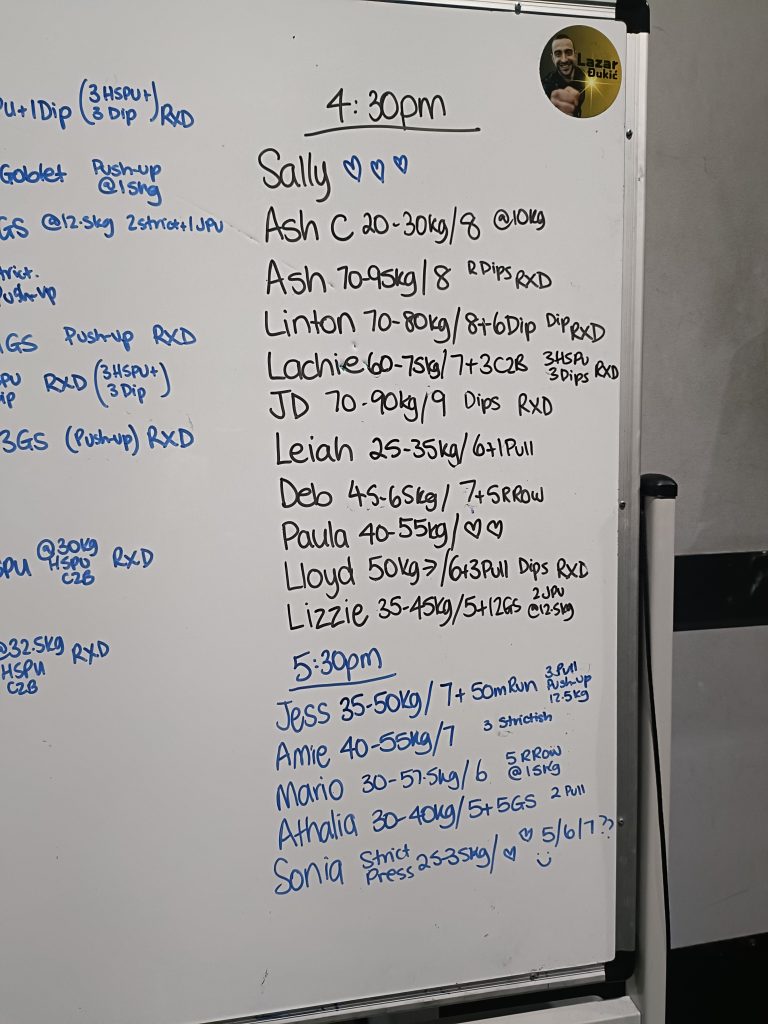 Lazar
Đukić
U+1Dip (3HSPU+ 3 Dip) RXD
Goblet Push-up @15kg
GS @12.5kg 2strict+1JPU
trict.
Push-up
1GS Push-up RXD
PU
ip RXD (3HSPU+ 3 Dip)
3GS (Push-up) RXD
SPU @30kg HSPU C2B RXD
@32.5kg RXD
HSPU
C2B
4:30pm
Sally ♡ ♡ ♡
Ash C 20-30kg/8 @10kg
Ash 70-95kg/8 R Dips RXD
Linton 70-80kg/8+6Dip Dip RXD
Lachie 60-75kg/7+3C2B 3HSPU 3Dips RXD
JD 70-90kg/9 Dips RXD
Leiah 25-35kg/6+1Pull
Deb 45-65kg/7+5RRow
Paula 40-55kg/♡♡
Lloyd 50kg→/6+3Pull Dips RXD
Lizzie 35-45kg/5+12GS 2JPU @12.5kg
5:30pm
Jess 35-50kg/7+50mRun 3.Pull Push-up 12.5kg
Amie 40-55kg/7 3 Strictish
Mario 30-57.5kg/6 5 RRow @15kg
Athalia 30-40kg/5+5GS 2 Pull
Sonia Strict Press 25-35kg/♡♡ 5/6/7??